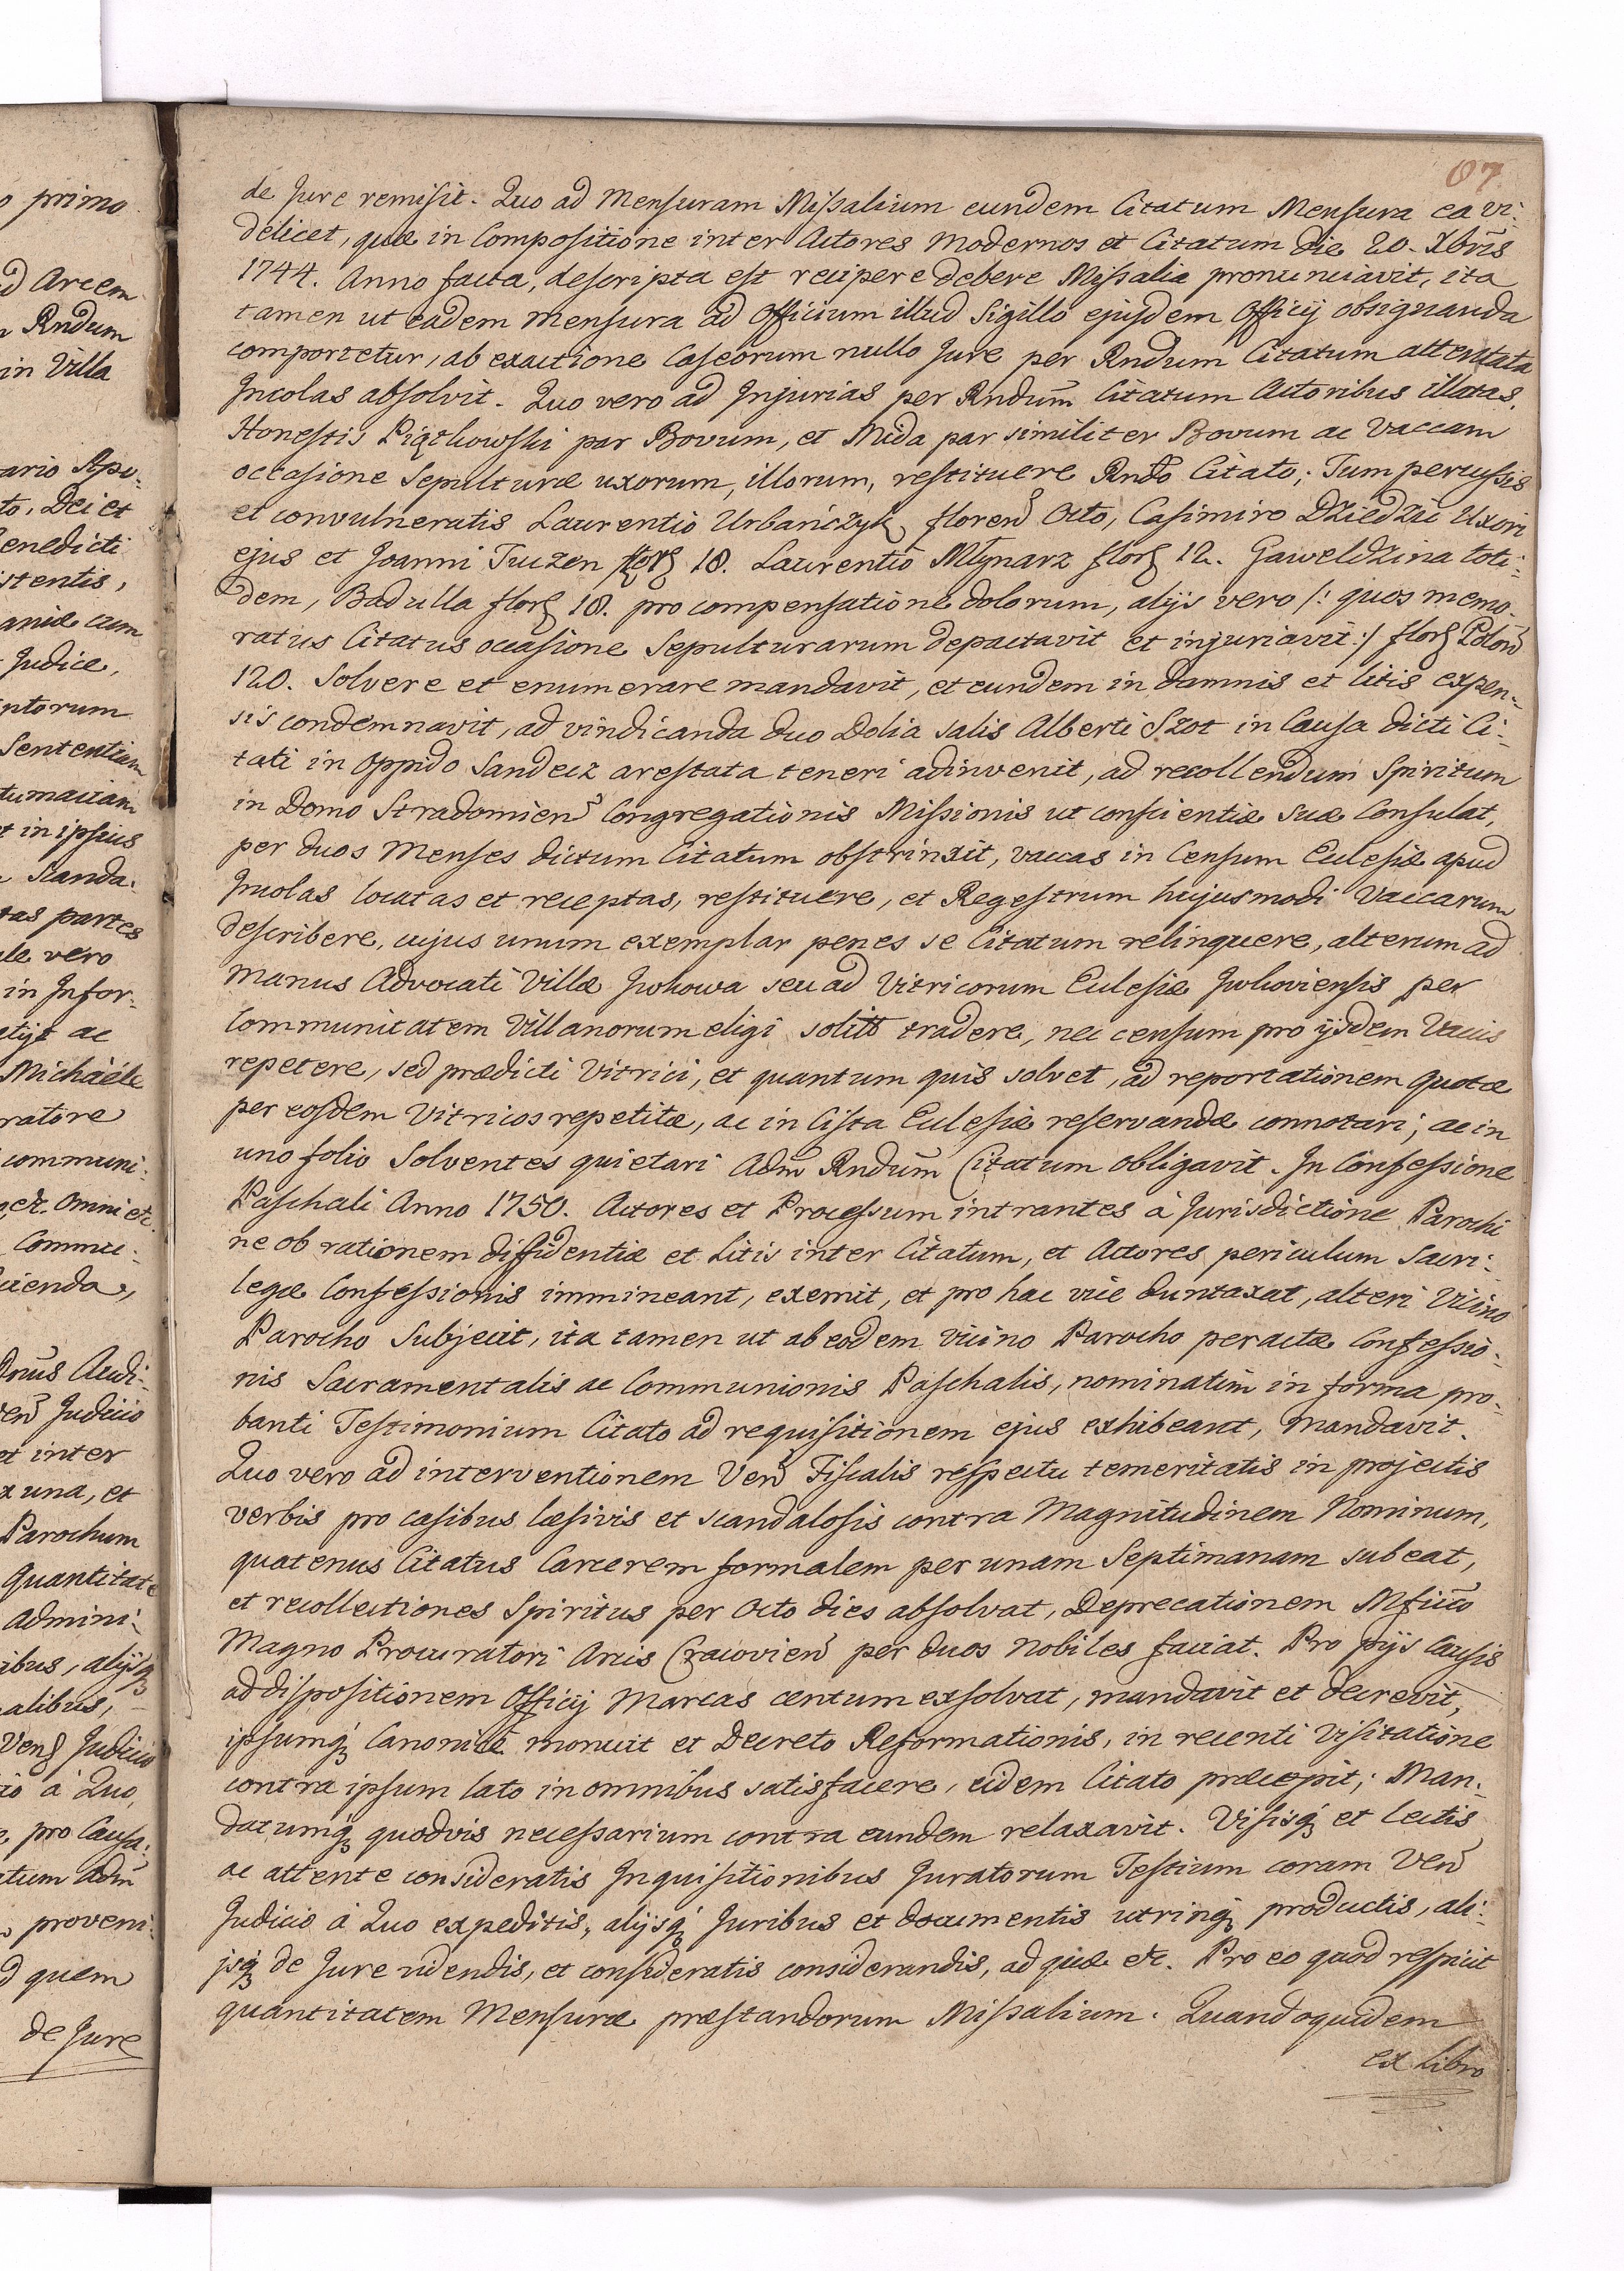 o primo
d Arcem
n Rndum
in Villa
ario Apo:
to, Dei et
enedicti
istentis,
aniæ cum
Judice,
ntorum
Sententiam
tumaciam
t in ipsius
Scanda:
tas partes
le vero
in Infor:
alijs ac
Michaële
ratore
communi:
etc. omni etc.
Commu:
cienda,
Dnus Audi:
Ven Judicio
et inter
x una, et
Parochum
quantitate
Admini:
ibus, alijsq
alibus,
Ven Judicio
io à Quo,
pro Causa:
tum Adm
proveni:
d quem
de Jure
67
de Jure remisit. Quo ad Mensuram Missalium eundem Citatum Mensura ea vi:
delicet, quæ in Compositione inter Actores Modernos et Citatum die 20. Xbris
1744. Anno facta, descripta est recipere debere Missalia pronunciavit, ita
tamen ut eadem Mensura ad Officium illud Sigillo ejusdem Officij obsignanda
comportetur, ab exactione Caseorum nullo Jure per Rndum Citatum attentata
Incolas absolvit. Quo vero ad Injurias per Rndum Citatum Actoribus illatas,
Honestis Piątkowski par Bovum, et Mida par similiter Bovum ac Vaccam
occasione Sepulturæ uxorum, illorum, restituere Rndo Citato; Tum percussis
et convulneratis Laurentio Urbańczyk floren Octo, Casimiro Dziedzic Uxori
ejus et Joanni Truzen flor 18. Laurentio Młynarz flor 12. Gaweldzina toti:
dem, Badulla flor 18. pro compensatione dolorum, alijs vero /: quos memo:
ratus Citatus occasione Sepulturarum depactavit et injuriavit :/ flor Polon
120. Solvere et enumerare mandavit, et eundem in damnis et litis expen:
sis condemnavit, ad vindicanda duo Dolia salis Alberti Szot in Causa dicti Ci:
tati in Oppido Sandecz arestata teneri adinvenit, ad recollendum Spiritum
in Domo Stradomien Congregationis Missionis ut conscientiæ suæ Consulat,
per duos Menses dictum Citatum obstrinxit, vaccas in Censum Eclesiæ apud
Incolas locatas et receptas, restituere, et Regestrum hujusmodi Vaccarum
describere, cujus unum exemplar penes se Citatum relinquere, alterum ad
Manus Advocati Villæ Iwkowa seu ad Vitricorum Eclesiæ Iwkoviensis per
Communitatem Villanorum eligi solit tradere, nec censum pro ijsdem Vaccis
repetere, sed prædicti Vitrici, et quantum quis solvet, ad reportationem quotæ
per eosdem Vitricos repetitæ, ac in Cista Eclesiæ reservandæ connotari; ac in
uno folio Solventes quietari Adm Rndum Citatum obligavit. In Confessione
Paschali Anno 1750. Actores et Processum intrantes à Jurisdictione Parochi
ne ob rationem diffidentiæ et Litis inter Citatum, et Actores periculum Sacri:
legæ Confessionis immineant, exemit, et pro hac vice duntaxat, alteri Vicino
Parocho Subjecit, ita tamen ut ab eodem vicino Parocho peractæ Confessio:
nis Sacramentalis ac Communionis Paschalis, nominatim in forma pro:
banti Testimonium Citato ad requisitionem ejus exhibeant, mandavit.
Quo vero ad interventionem Ven Fiscalis respectu temeritatis in projectis
verbis pro casibus læsivis et scandalosis contra Magnitudinem Nominum,
quatenus Citatus Carcerem formalem per unam Septimanam subeat,
et recollectiones Spiritus per Octo dies absolvat, Deprecationem Mfico
Magno Procuratori Arcis Cracovien per duos Nobiles faciat. Pro pijs Causis
ad dispositionem Officij Marcas centum exsolvat, mandavit et decrevit,
ipsumq Canonicè monuit et Decreto Reformationis, in recenti Visitatione
contra ipsum lato in omnibus satisfacere, eidem Citato præcepit; Man:
datumq quodvis necessarium contra eundem relaxavit. Visisq et lectis
ac attente consideratis Inquisitionibus Juratorum Testium coram Ven
Judicio à Quo expeditis, alijsq Juribus et documentis utrinq productis, ali:
jsq de Jure videndis, et consideratis considerandis, ad quæ etc. Pro eo quod respicit
quantitatem Mensuræ præstandorum Missalium. Quandoquidem
ex Libro